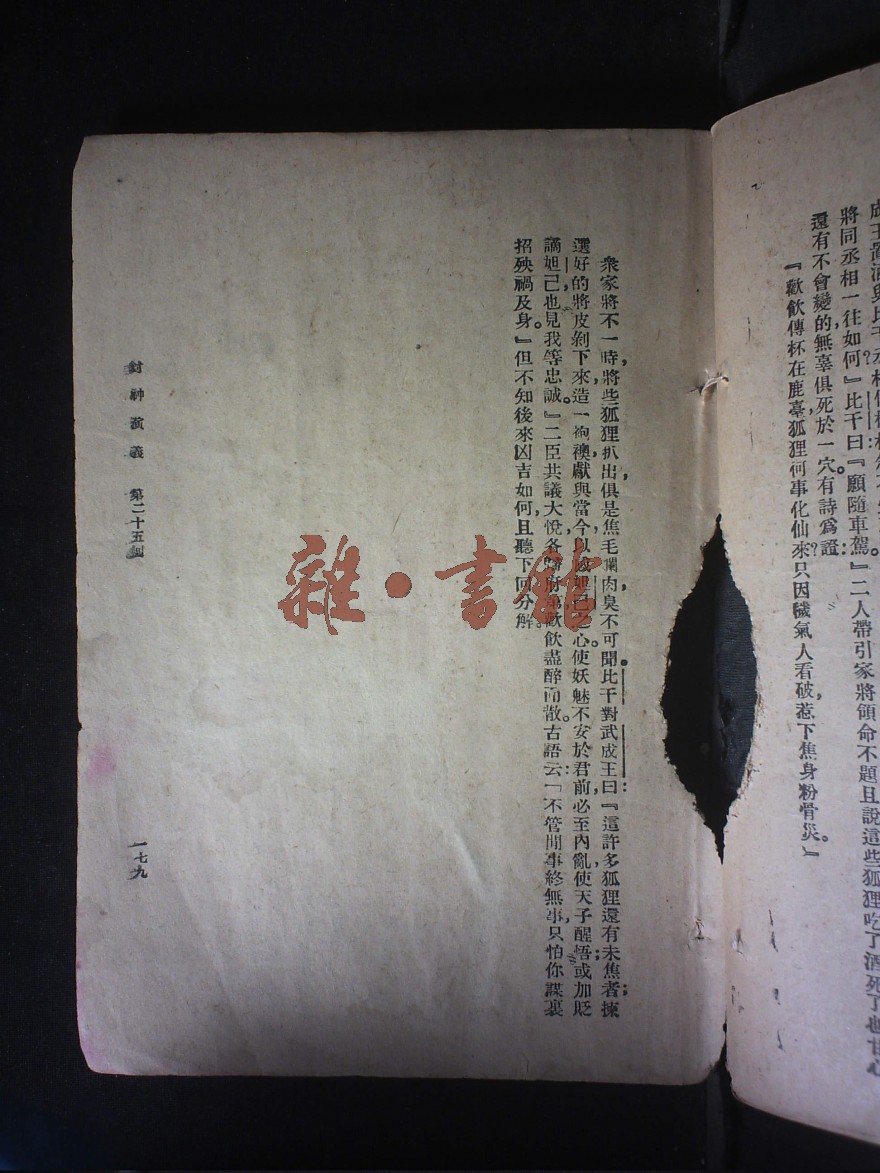 將同丞相一往如何』比干曰『願隨車駕』二人帶引家將領命不題且說這些狐狸吃了酒死了也甘心
還有不會變的無辜俱死於一穴有詩爲證
『歡飲傳杯在鹿臺狐狸何事化仙來只因穢氣人看破惹下焦身粉骨災。』
衆家將不一時，將些狐狸扒出，俱是焦毛爛肉，臭不可聞。比干對武成王曰：『這許多狐狸，還有未焦者，揀
選好的，將皮剝下來，造一袍襖，獻與當今，以 妲己之心，使妖魅不安於君前，必至內亂；使天子醒悟，或加貶
謫妲己，也見我等忠誠。』二臣共議大悅，各歸府第，歡飲盡醉而散。古語云：『不管閒事終無事，只怕你謀裏
招殃禍及身。』但不知後來凶吉如何，且聽下回分解。
封神演義 第二十五回
一七九
雜·書館